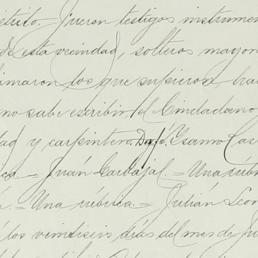 strito. Fueron testigos instrumen
de esta vecindad, solteros mayor
firmaron los que supieron ha
no sabe escribir, el Ciudadano
dad y carpintero Dn.
Juán Carbajal.= Una rúbri
a.= Una rúbrica = Julián Leon
los veintiseis días del mes de Ju